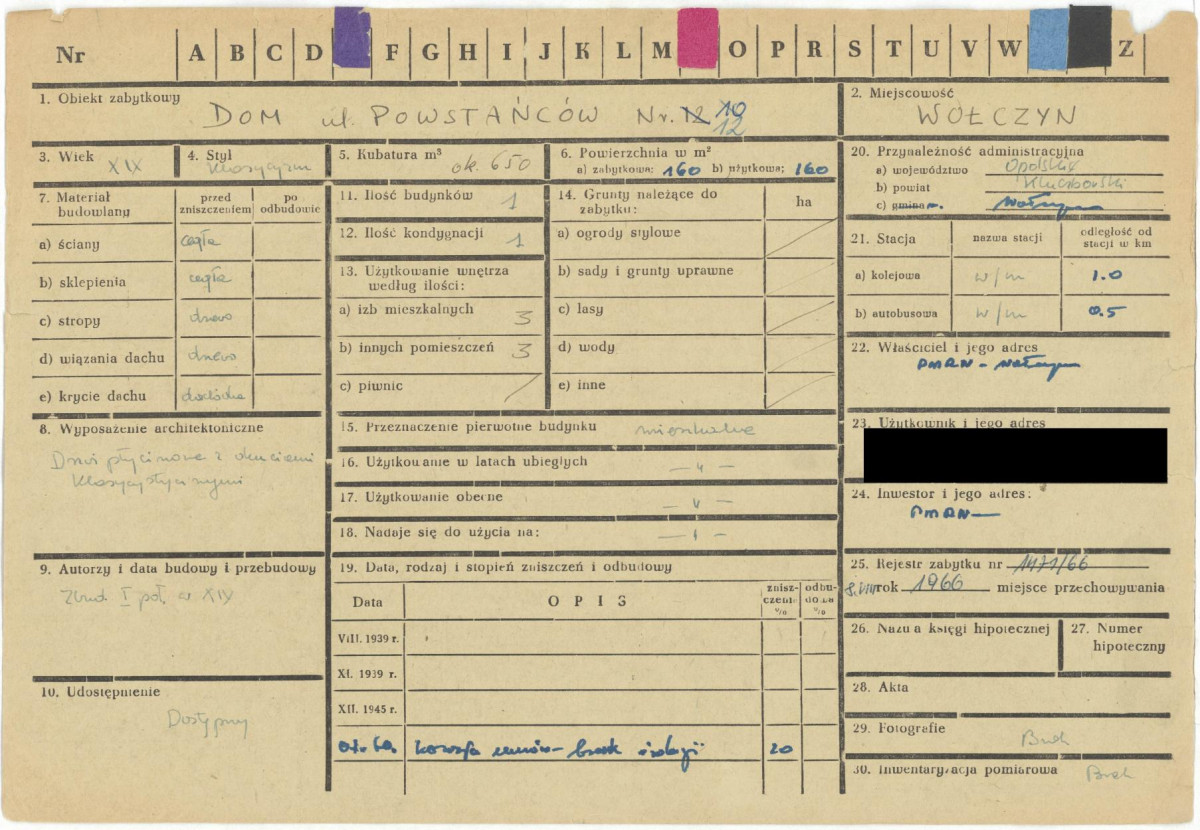 Nr A B C D F G H I J K L M O P R S T U V W Z
1. Obiekt zabytkowy
DOM ul. POWSTAŃCÓW Nr. 12 10
12
2. Miejscowość
WOŁCZYN
3. Wiek XIX
4. Styl
Klasycyzm
5. Kubatura m³
ok. 650
6. Powierzchnia w m²
a) zabytkowa; 160 b) użytkowa; 160
20. Przynależność administracyjna
a) województwo Opolskie
b) powiat Kluczborski
c) gmina m. Wołczyn
7. Materiał budowlany
przed zniszczeniem
po odbudowie
a) ściany cegła
b) sklepienia cegła
c) stropy drewo
d) wiązania dachu drewo
e) krycie dachu dachówka
11. Ilość budynków 1
12. Ilość kondygnacji 1
13. Użytkowanie wnętrza według ilości:
a) izb mieszkalnych 3
b) innych pomieszczeń 3
c) piwnic /
14. Grunty należące do zabytku:
ha
a) ogrody stylowe
b) sady i grunty uprawne
c) lasy
d) wody
e) inne
21. Stacja
nazwa stacji
odległość od stacji w km
a) kolejowa w/m 1.0
b) autobusowa w/m 0.5
22. Właściciel i jego adres
PMRN - Wołczyn
8. Wyposażenie architektoniczne
Drzwi płycinowe z okuciami
klasycystycznymi
15. Przeznaczenie pierwotne budynku mieszkalne
16. Użytkowanie w latach ubiegłych — " —
17. Użytkowanie obecne — " —
18. Nadaje się do użycia na: — " —
23. Użytkownik i jego adres
24. Inwestor i jego adres:
PMRN —
9. Autorzy i data budowy i przebudowy
Zbud. I poł. w XIX
10. Udostępnienie
Dostępny
19. Data, rodzaj i stopień zniszczeń i odbudowy
Data
OPIS
zniszczenia %
odbudowa %
VIII. 1939 r.
XI. 1939 r.
XII. 1945 r.
korozja murów - brak izolacji 20
25. Rejestr zabytku nr 1171/66
rok 1966 miejsce przechowywania
26. Nazwa księgi hipotecznej
27. Numer hipoteczny
28. Akta
29. Fotografie
Brak
30. Inwentaryzacja pomiarowa Brak